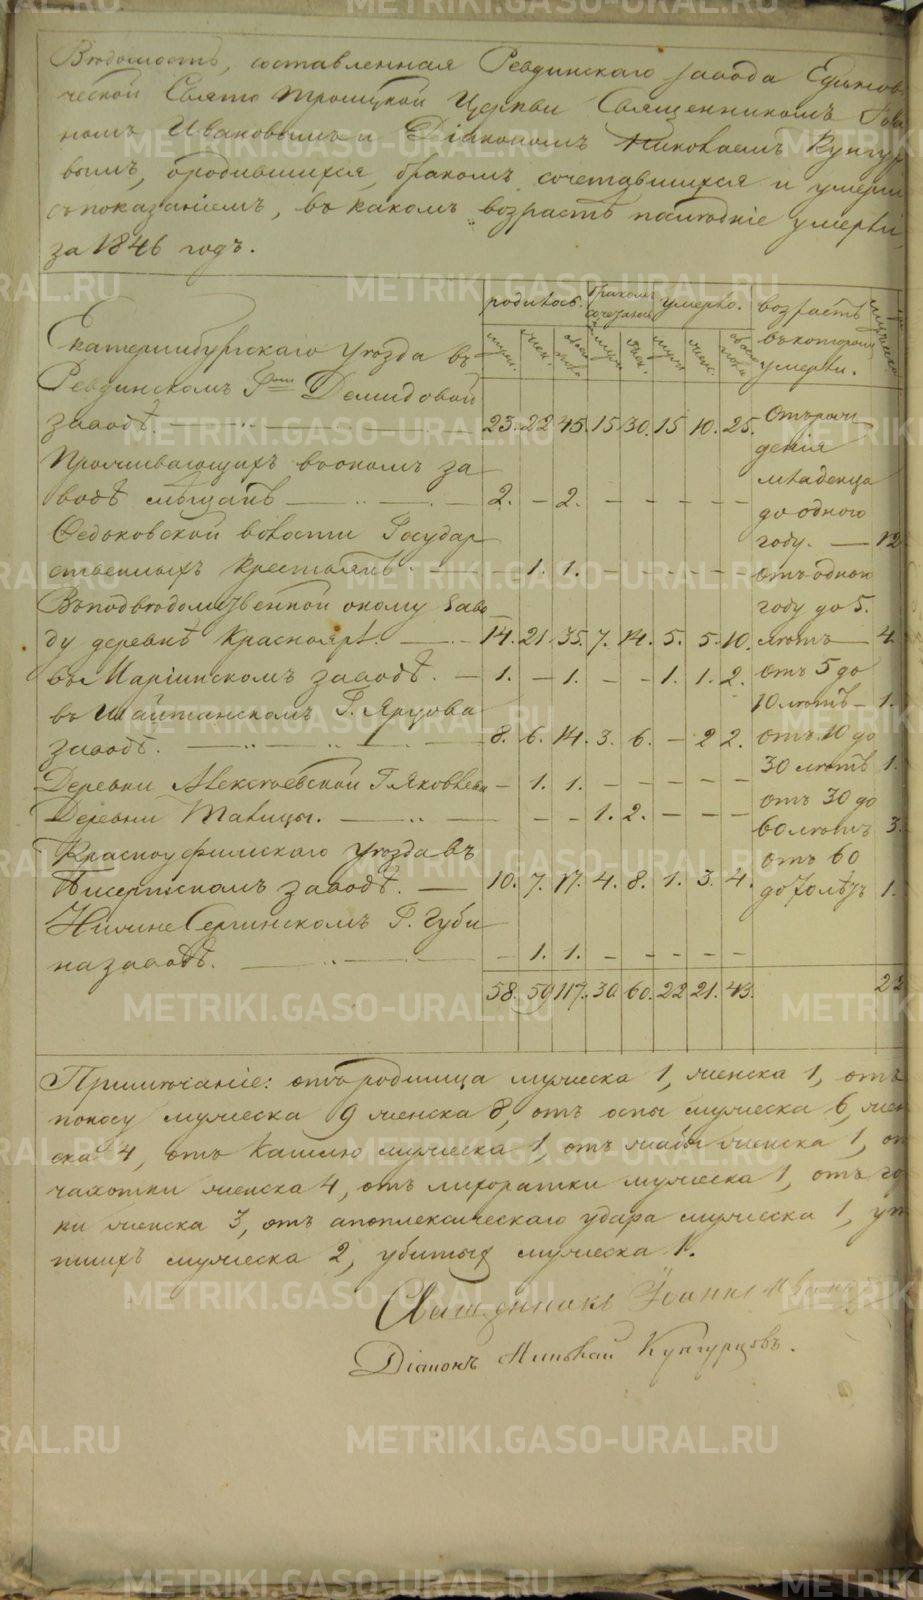 Вѣдомость, составленная Ревдинскаго завода Единов
ческой Свято Троицкой Церкви Священникомъ Іоан
номъ Ивановымъ и Діакономъ Николаемъ Кунгур
вымъ, о родившихся, бракомъ сочетавшихся и умерши
съ показаніемъ, въ какомъ возрастѣ послѣдніе умерли,
за 1846 годъ.
родилось. бракомъ сочеталось умерло. возрастъ
въ которомъ
умерли.
мужеск. женск. обоего пола мужи жен. мужи женск. обоего пола
Екатеринбургскаго уѣзда въ
Ревдинскомъ Гжи Демидовой
заводѣ. 23. 22 45. 15 30. 15 10. 25.
Проживающихъ въ ономъ за
водѣ мѣщанъ 2. – 2. – – – – –
волости Государ
ственныхъ крестьянъ. – 1. 1. – – – – –
Въ подвѣдомственной оному заво
ду деревнѣ Краснояръ 14. 21. 35. 7. 14. 5. 5. 10.
въ Маріинскомъ заводѣ. 1. – 1. – – 1. 1. 2.
въ Шайтанскомъ Г. Ярцова
заводѣ. 8. 6. 14. 3. 6. – 2 2.
Деревни Алексѣевской Г. Яковлева – 1. 1. – – – – –
Деревни Талицы. – – – 1. 2. – – –
Красноуфимскаго уѣзда въ
Бисертскомъ заводѣ. 10. 7. 17. 4. 8. 1. 3. 4.
Нижне Сергинскомъ Г. Губи
на заводѣ. – 1. 1. – – – – –
58. 59 117. 30. 60. 22 21. 43.
Отъ рож
денія
младенца
до одного
году. — 12
отъ одного
году до 5.
лѣтъ — 4.
отъ 5 до
10 лѣтъ – 1.
отъ 10 до
30 лѣтъ 1.
отъ 30 до
60 лѣтъ 3.
отъ 60
до 70 лѣтъ 1.
22
Примѣчаніе: отъ родимца мужеска 1, женска 1, отъ
поносу мужеска 9 женска 8, отъ оспы мужеска 6, жен
ска 4, отъ кашлю мужеска 1, отъ жабы женска 1, от
чахотки женска 4, отъ лихоратки мужеска 1, отъ го
ки женска 3, отъ апоплексическаго удара мужеска 1, ут
пшихъ мужеска 2, убитыхъ мужеска 1.
Священникъ Іоаннъ Ивановъ
Діаконъ Николай Кунгурцовъ.
METRIKI.GASO-URAL.RU